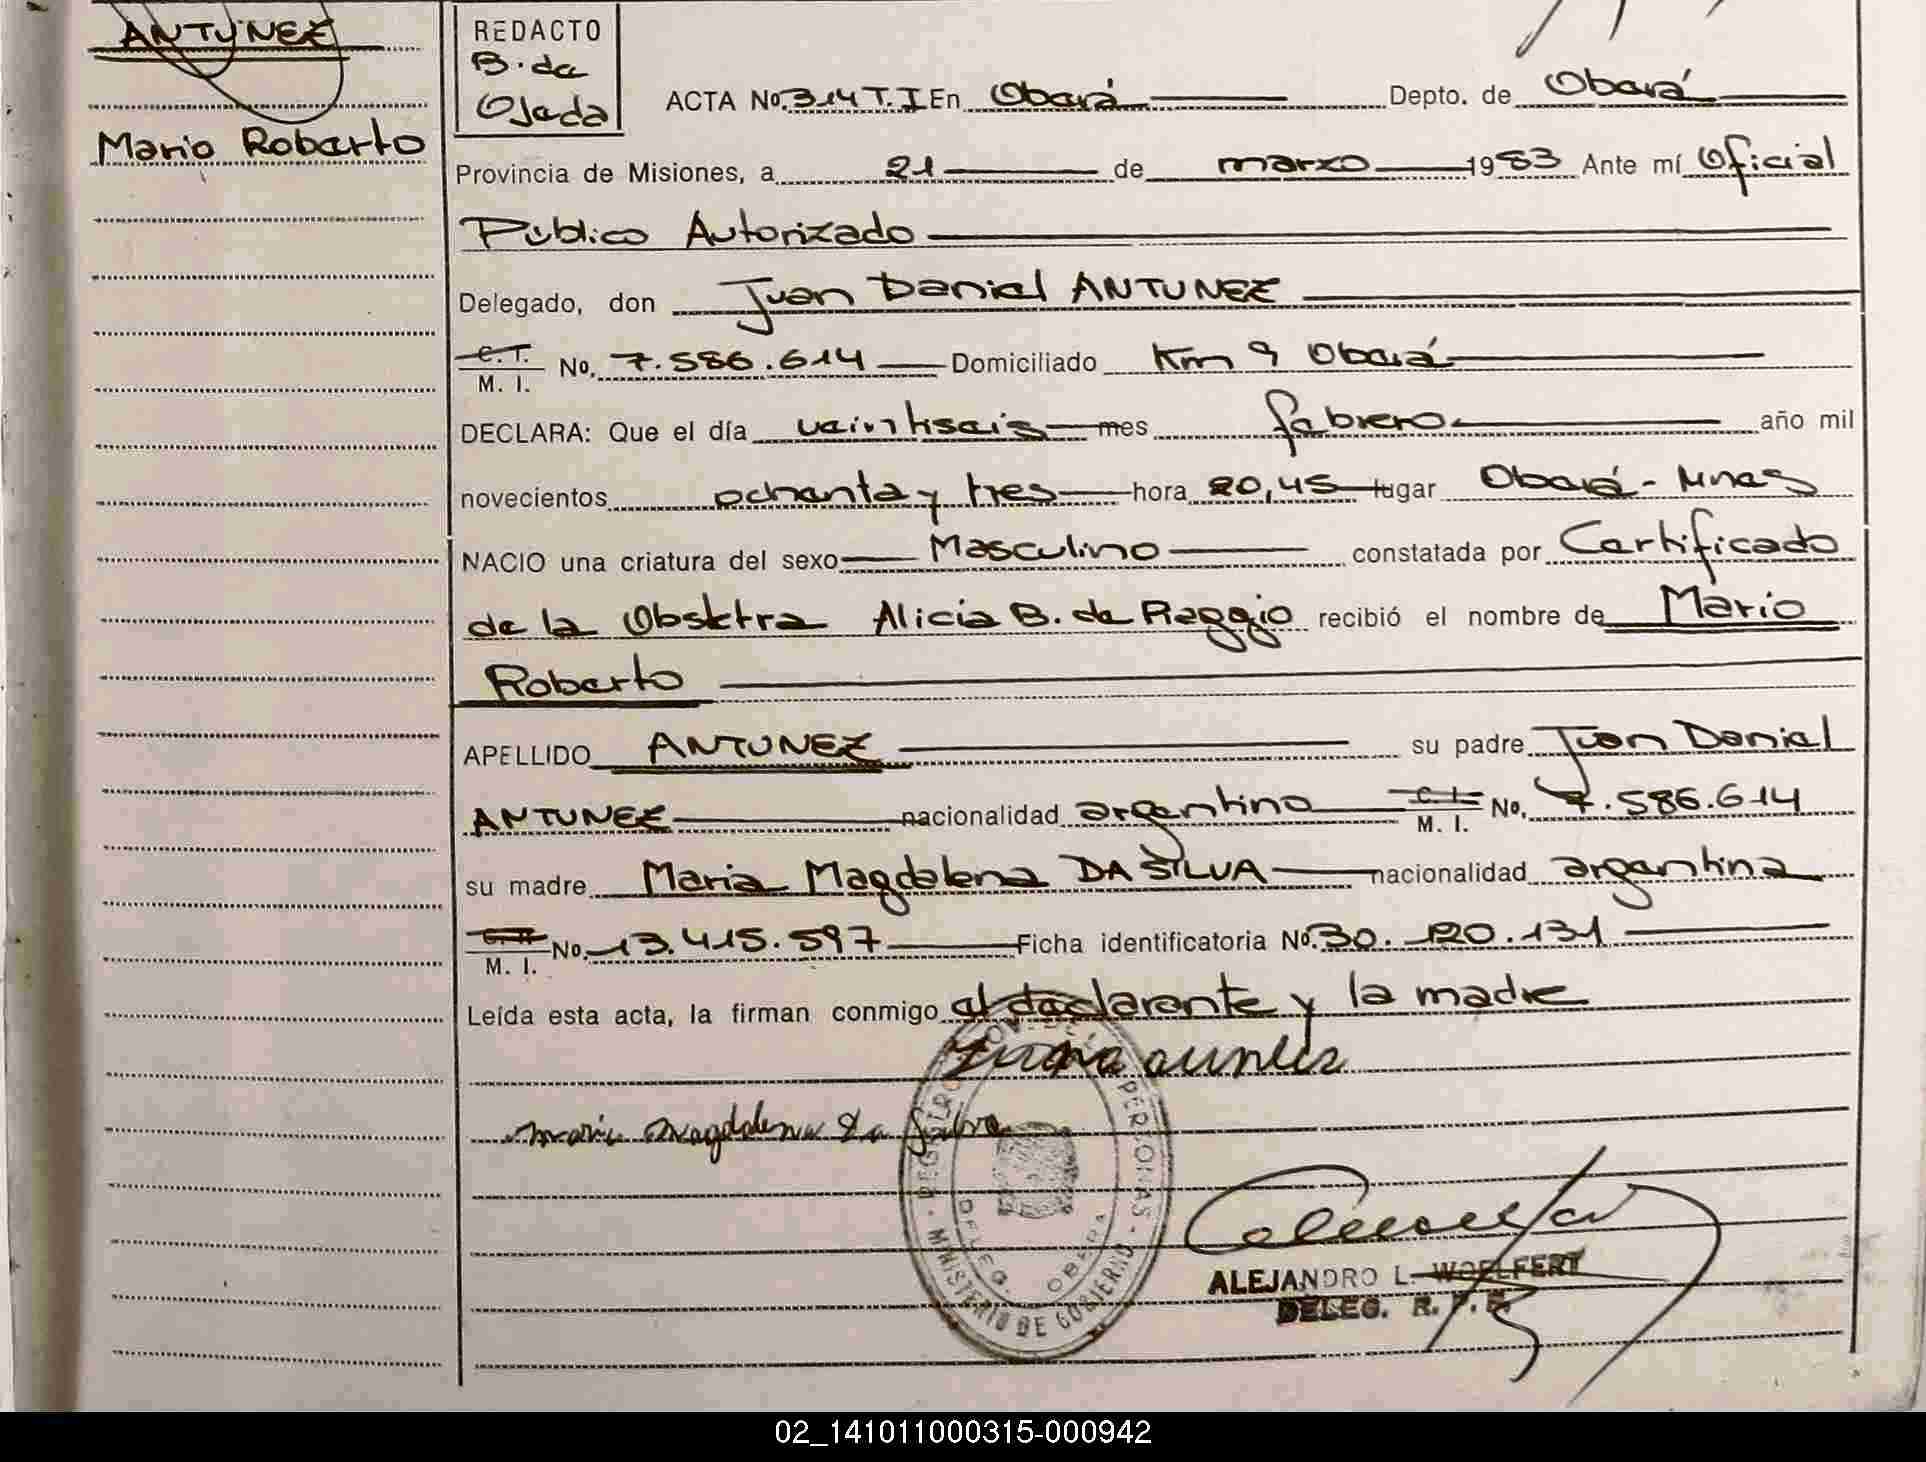 ANTUNEZ
Mario Roberto
REDACTO
B. de
Ojeda
ACTA No. 314 T. I En Oberá Depto. de Oberá
Provincia de Misiones, a 21 de marzo 1983 Ante mí Oficial
Público Autorizado
Delegado, don Juan Daniel ANTUNEZ
C. I.
M. I. No. 7.586.614 Domiciliado Km 9 Oberá
DECLARA: Que el día veintiseis mes febrero año mil
novecientos ochenta y tres hora 20,45 lugar Oberá - Mnes
NACIO una criatura del sexo Masculino constatada por Certificado
de la Obstetra Alicia B. de Raggio recibió el nombre de Mario
Roberto
APELLIDO ANTUNEZ su padre Juan Daniel
ANTUNEZ nacionalidad argentino C. I.
M. I. No. 7.586.614
su madre Maria Magdalena DA SILVA nacionalidad argentina
M. I. No. 13.415.597 Ficha identificatoria No. 30.120.131
Leída esta acta, la firman conmigo el declarante y la madre
maria magdalena da Silva
REGISTRO PROV. DE LAS PERSONAS
MINISTERIO DE GOBIERNO
DELEG. OBERA
ALEJANDRO L. WOELFERT
DELEG. R. P. P.
02_141011000315-000942